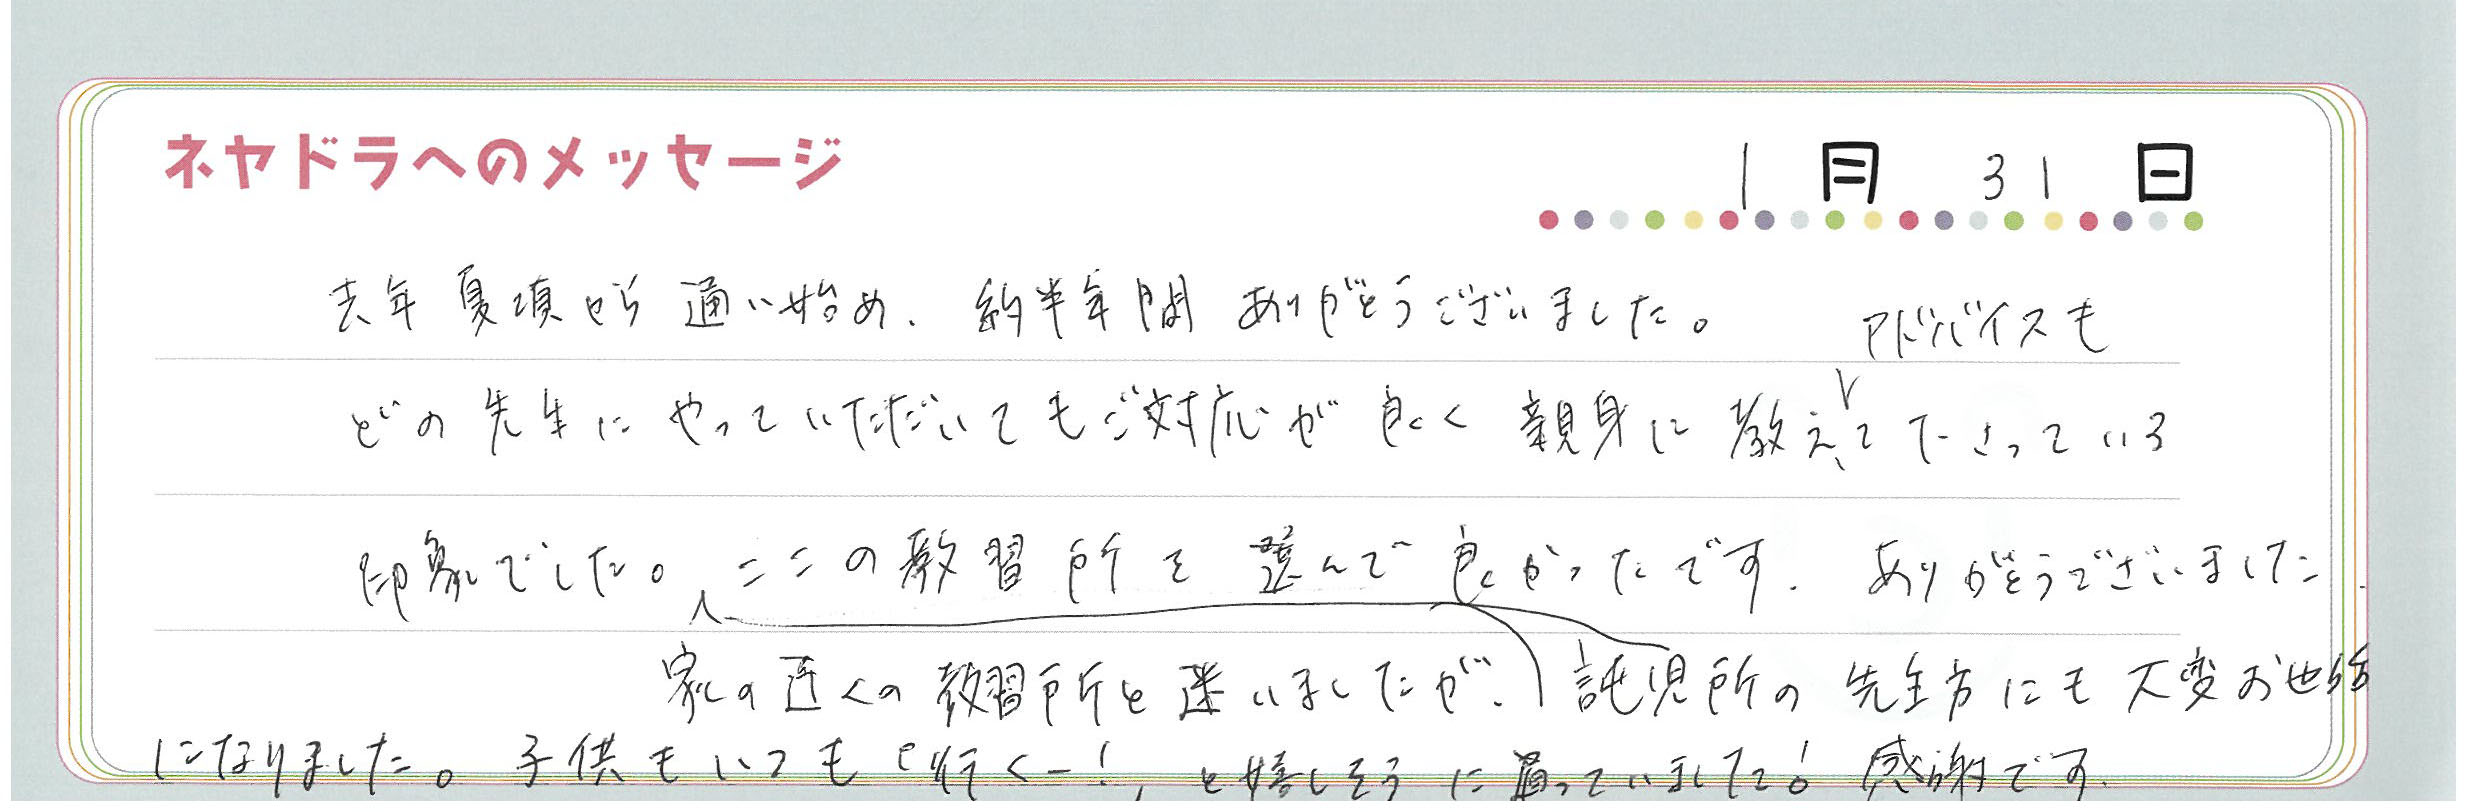 ネヤドラへのメッセージ
1月 31日
去年夏頃から通い始め、約半年間ありがとうございました。
アドバイスも
どの先生にやっていただいてもご対応が良く親身に教えて下さっている
印象でした。ここの教習所を選んで良かったです。ありがとうございました。
家の近くの教習所と迷いましたが、託児所の先生方にも大変お世話
になりました。子供もいつも「行くー!」と嬉しそうに通っていました!感謝です。